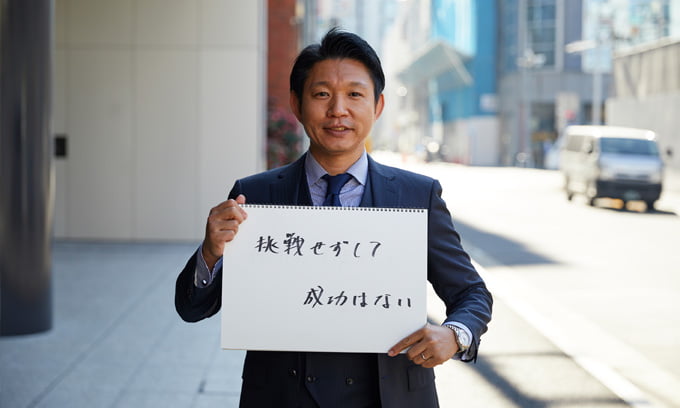 挑戦せずして
成功はない